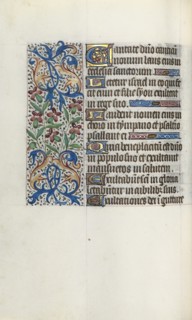 Cantate dño canticũ
nouum laus eius in
ecclesia sanctorum
Letetur israel in eo qui fe
cit eum et filie syon exultent
in rege suo
Laudent nomen eius in
choro in tympano et psalterio
psallant ei
Quia beneplacitũ est dño
in populo suo et exaltauit
mansuetos in salutem
Exultabũt sci in gloria
letabũtur in cubilibus suis
Exultationes dei ĩ gutture